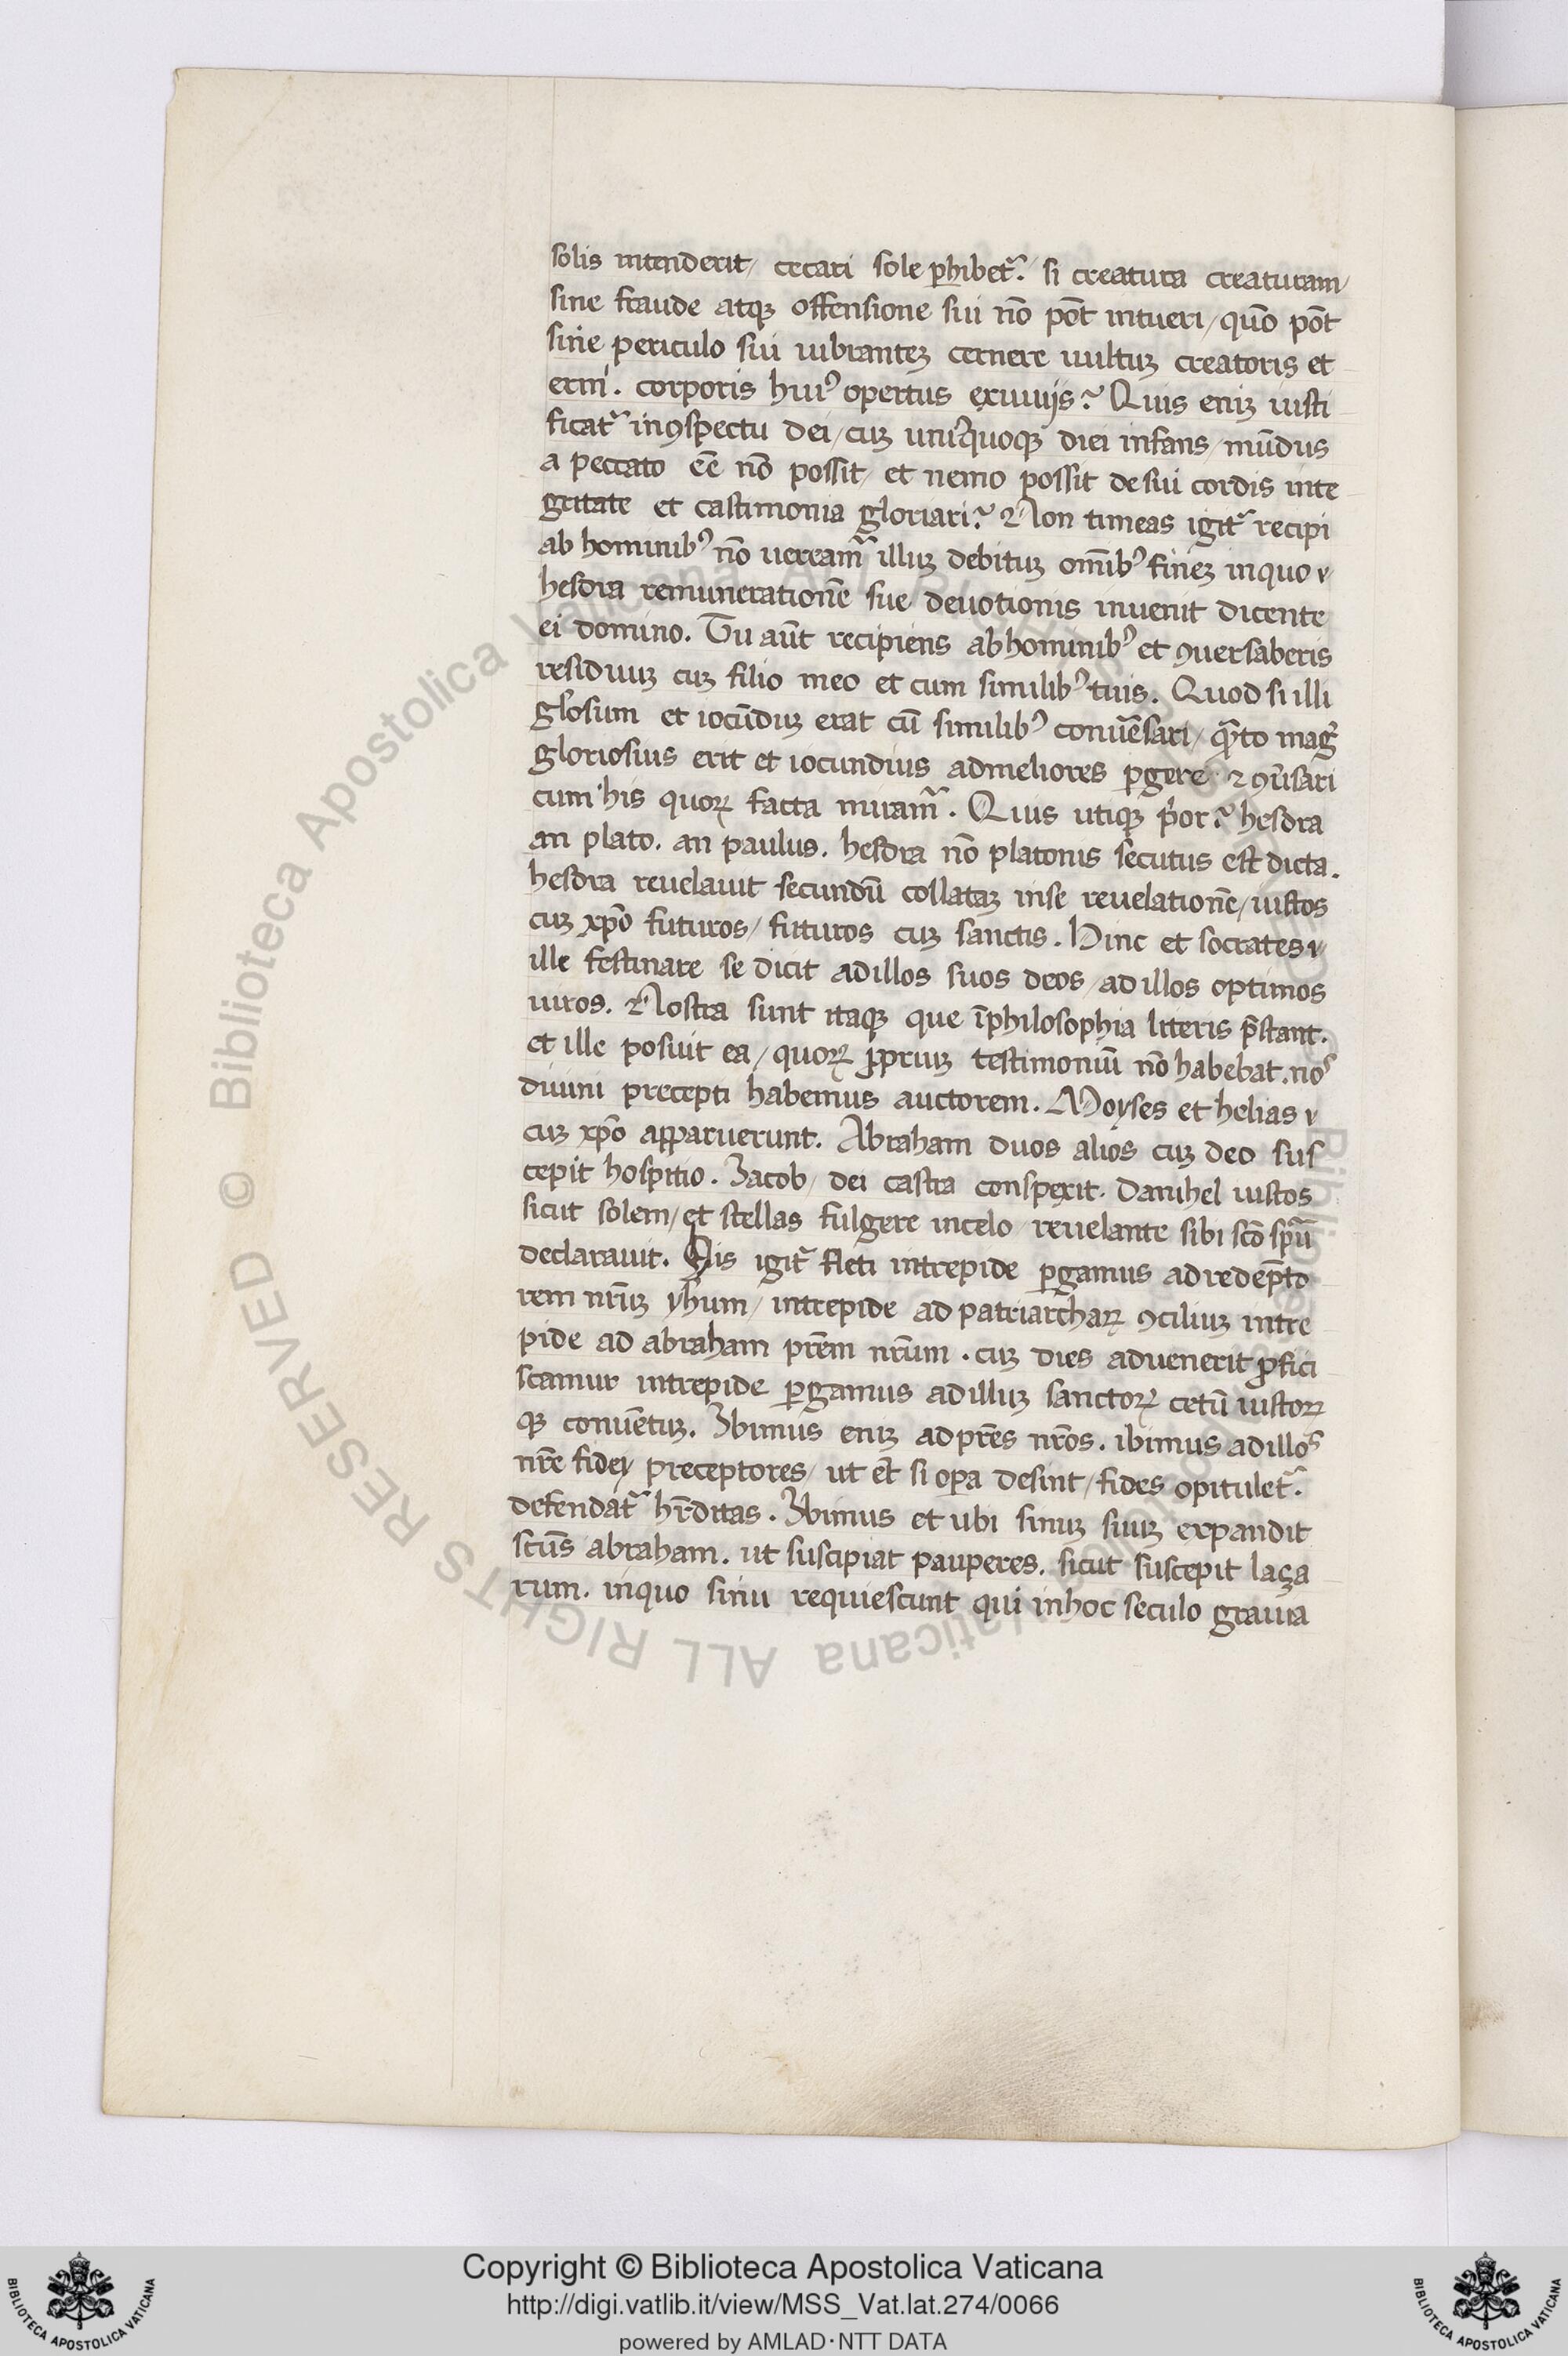 solis intenderit/ cecari sole ꝑhibet᷑. si creatura creaturam/
sine fraude atqꝫ offensione sui nō pōt intueri/ quō pōt
sine periculo sui uibranteꝫ cernere uultuꝫ creatoris et
erni. corporis huiꝰ opertus exuuijs? Quis eniꝫ iusti
ficat᷑ inꝯspectu dei/ cuꝫ uniꝰquoqꝫ diei infans/ mūdus
a peccato eē nō possit/ et nemo possit de sui cordis inte
gritate et castimonia gloriari? Non timeas igit᷑ recipi
ab hominibꝰ nō ueream᷑ illuꝫ debituꝫ om̄ibꝰ fineꝫ inquo
hesdra remunerationē sue deuotionis inuenit dicente
ei domino. Tu aūt recipiens abhominibꝰ et ꝯuersaberis
residuuꝫ cuꝫ filio meo et cum similibꝰ tuis. Quod si illi
gl'osum et iocūdiuꝫ erat cū similibꝰ conūsari/ qᷓto magꝭ
gloriosius erit et iocundius admeliores ꝑgere ⁊ ꝯūsari
cum his quoꝝ facta miram᷑. Quis utiqꝫ p̓or? hesdra
an plato. an paulus. hesdra nō platonis secutus est dicta.
hesdra reuelauit secundū collataꝫ inse reuelationē/ iustos
cuꝫ xp̄o futuros/ futuros cuꝫ sanctis. Hinc et socrates
ille festinare se dicit adillos suos deos/ ad illos optimos
uiros. Nostra sunt itaqꝫ que īphilosophia literis p̄stant.
et ille posuit ea/ quoꝝ ꝓpriuꝫ testimoniū nō habebat. nos
diuini precepti habemus auctorem. Moyses et helias
cuꝫ xp̄o apparuerunt. Abraham duos alios cuꝫ deo sus
cepit hospitio. Jacob/ dei castra conspexit. Danihel iustos
sicut solem/ et stellas fulgere incelo/ reuelante sibi scō spū
declarauit. His igit᷑ fleti intrepide ꝑgamus adredēpto
rem nr̄uꝫ yh̄um/ intrepide ad patriarchaꝝ ꝯciliuꝫ intre
pide ad abraham pr̄em nr̄um. cuꝫ dies aduenerit ꝓfici
scamur intrepide ꝑgamus adilluꝫ sanctoꝝ cetū iustoꝝ
qꝫ conuētuꝫ. Ibimus eniꝫ adpr̄es nr̄os. ibimus adillos
nr̄e fidei preceptores/ ut et̄ si oꝑa desint/ fides opitulet᷑.
defendat᷑ hr̄ditas. Ibimus et ubi sinuꝫ suuꝫ expandit
scūs abraham. ut suscipiat pauperes. sicut suscepit laça
rum. inquo sinu requiescunt qui inhoc seculo grauia
© Biblioteca Apostolica Vaticana ALL RIGHTS RESERVED
Copyright © Biblioteca Apostolica Vaticana
http://digi.vatlib.it/view/MSS_Vat.lat.274/0066
powered by AMLAD·NTT DATA
BIBLIOTECA APOSTOLICA VATICANA
BIBLIOTECA APOSTOLICA VATICANA